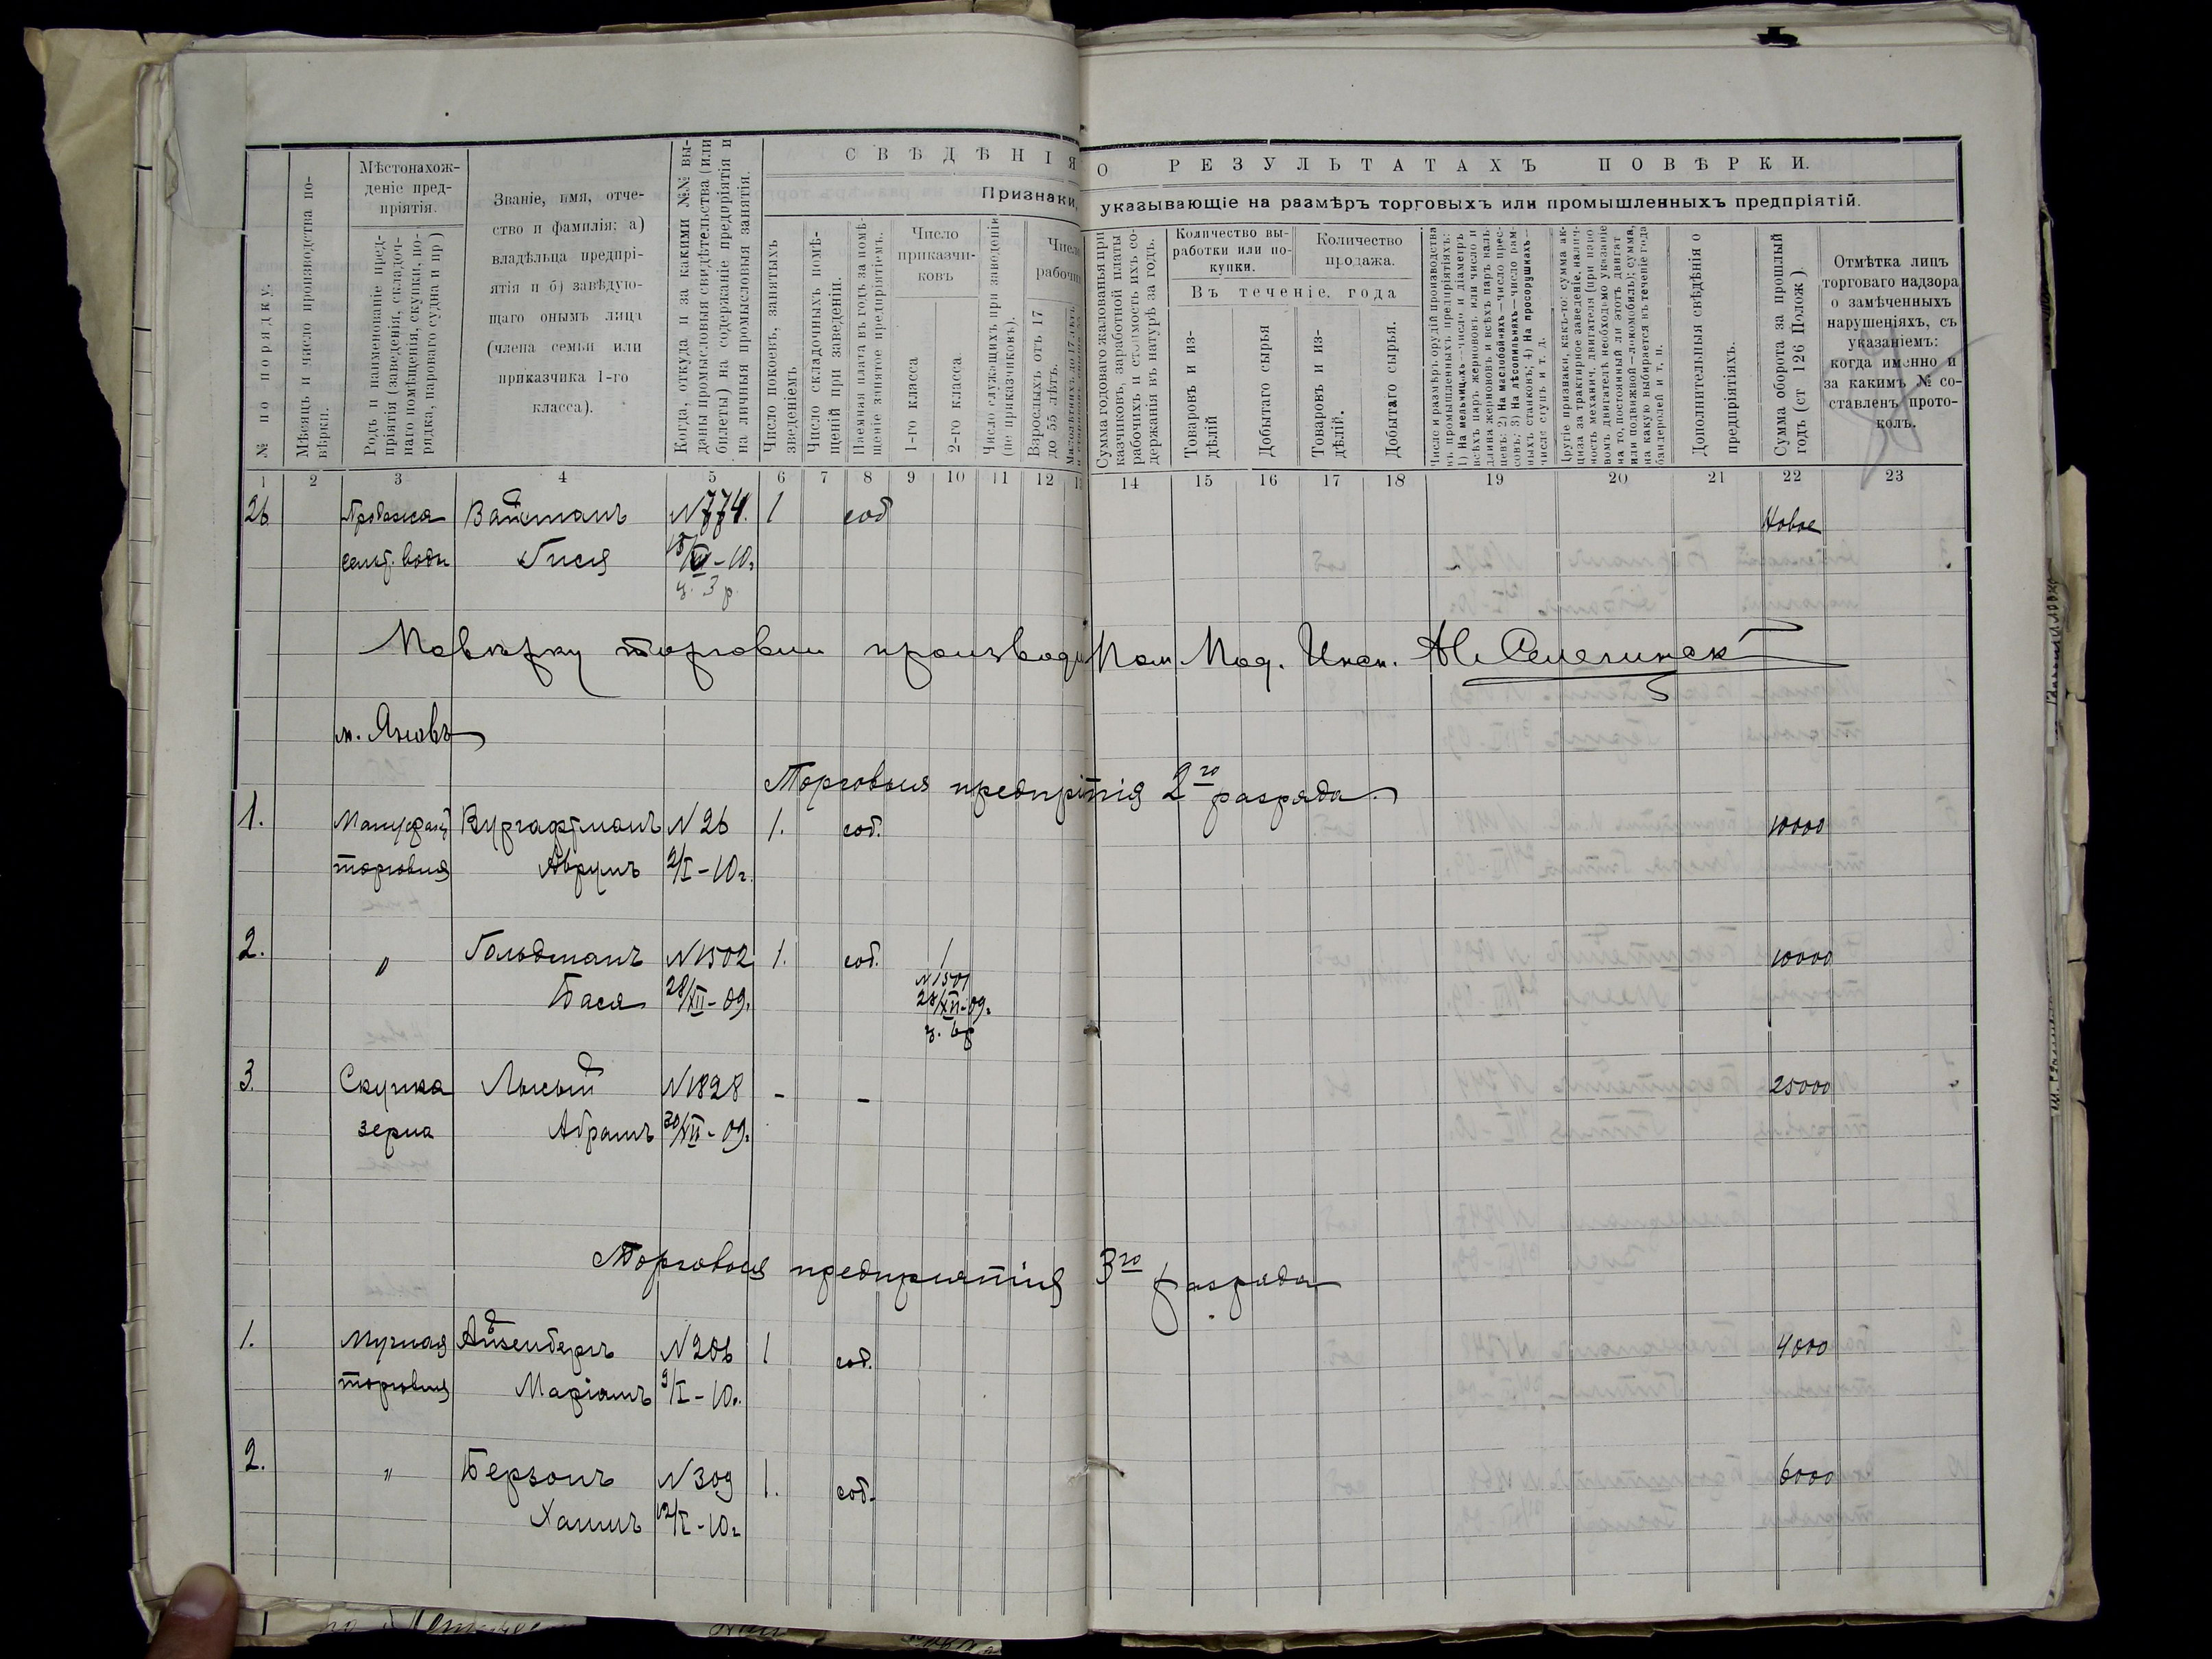 СВѢДѢНІЯ О РЕЗУЛЬТАТАХЪ ПОВѢРКИ.
Признаки, указывающіе на размѣръ торговыхъ или промышленныхъ предпріятій.
№ по порядку.
Мѣсяцъ и число производства по-
вѣрки.
Мѣстонахож-
деніе пред-
пріятія.
Родъ и наименованіе пред-
пріятія (заведенія, складоч-
наго помѣщенія, скупки, по-
рядка, парового судна и пр)
Званіе, имя, отче-
ство и фамилія: а)
владѣльца предпрі-
ятія и б) завѣдую-
щаго онымъ лица
(члена семьи или
приказчика 1-го
класса).
Когда, откуда и за какими №№ вы-
даны промысловыя свидѣтельства (или
билеты) на содержаніе предпріятія и
на личныя промысловыя занятія.
Число покоевъ, занятыхъ
зведеніемъ
Число складочныхъ помѣ-
щеній при заведеніи.
Наемная плата въ годъ за помѣ-
щеніе занятое предпріятіемъ.
Число
приказчи-
ковъ
1-го класса
2-го класса
Число служащихъ при заведеніи
(не приказчиковъ).
Число
рабочихъ
Взрослыхъ отъ 17
до 55 лѣтъ.
Сумма годоваго жалованья при
казчиковъ, заработной платы
рабочихъ и стоимость ихъ со-
держанья въ натурѣ за годъ.
Количество вы-
работки или по-
купки.
Количество
продажа.
Въ теченіе. года
Товаровъ и из-
дѣлій
Добытаго сырья
Товаровъ и из-
дѣлій.
Добытаго сырья.
Число и размѣръ орудій производства
въ промышленныхъ предпріятіяхъ:
1) На мельницахъ—число и діаметръ
всѣхъ паръ жерновов. или число и
длина жерноновъ и всѣхъ паръ валь-
цевъ: 2) На маслобойняхъ—число прес-
совъ; 3) На лѣсопильняхъ—число рам-
ныхъ станковъ; 4) На просорушкахъ—
число ступъ и т. д.
Другіе признаки, какъ-то: сумма ак-
циза за трактирное заведеніе, налич-
ность механич. двигателя (при паро
вомъ двигателѣ необходимо указаніе
на то, постоянный ли этотъ двигат
или подвижной—локомобиль); сумма,
на какую выбирается въ теченіе года
бандеролей и т, п.
Дополнительныя свѣдѣнія о
предпріятіяхъ.
Сумма оборота за прошлый
годъ (ст 126 Полож )
Отмѣтка лицъ
торговаго надзора
о замѣченныхъ
нарушеніяхъ, съ
указаніемъ:
когда именно и
за какимъ № со-
ставленъ прото-
колъ.
1 2 3 4 5 6 7 8 9 10 11 12 14 15 16 17 18 19 20 21 22 23
26 Продажа Вайсманъ N774. 1 соб Новое
сельт. воды Гися -10г
ц. 3 р
Повѣрку торговли производи Пом. Под. Инсп.
м. Яновъ
Торговыя предпрітія 2го разряда.
1. Мануфакт Вургафтманъ N26 1. соб. 10000
торговля Аврумъ 2/I-10г.
2. " Гольдманъ N1502 1. соб. 1 10000
Бася 28/XII-09г N1501
28/XII-09г
ц. 6р
3. Скупка Лысый N1828 - - 25000
зерна Абрамъ 30/XII-09г
Торговыя предпріятія 3го разряда
1. Мучная Айзенбергъ N206 1 соб. 4000
торговля Маріамъ 9/I-10г.
2. " Берзонъ N309 1. соб. 6000
Хаимъ 12/I-10г